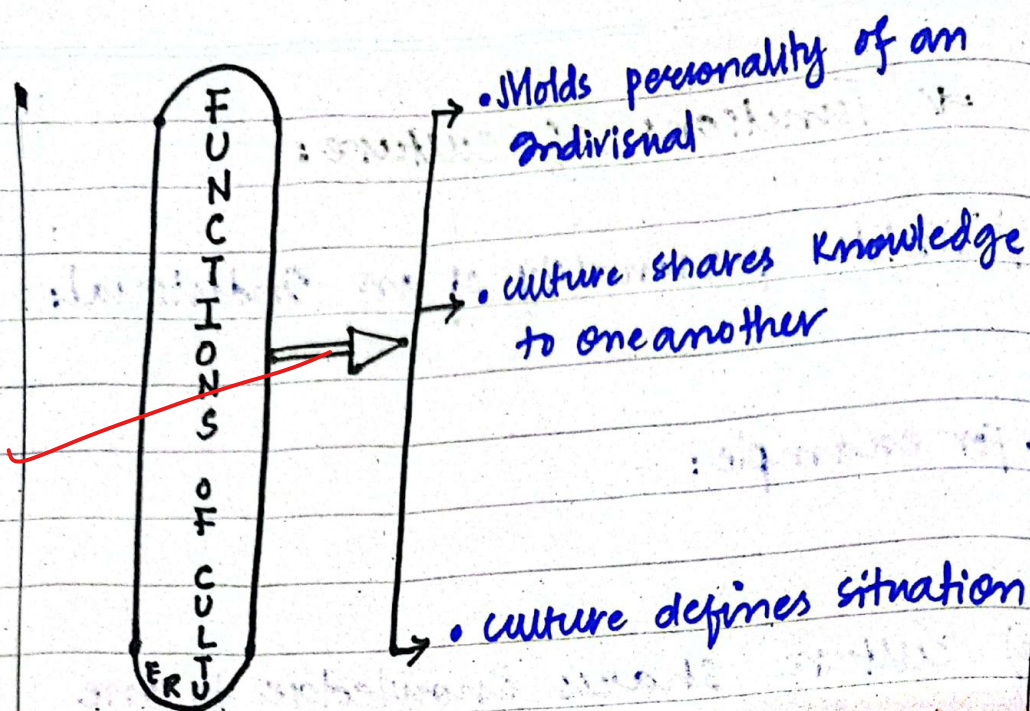 FUNCTIONS OF CULTURE
• Molds personality of an
indivisual
• culture shares knowledge
to one another
• culture defines situation